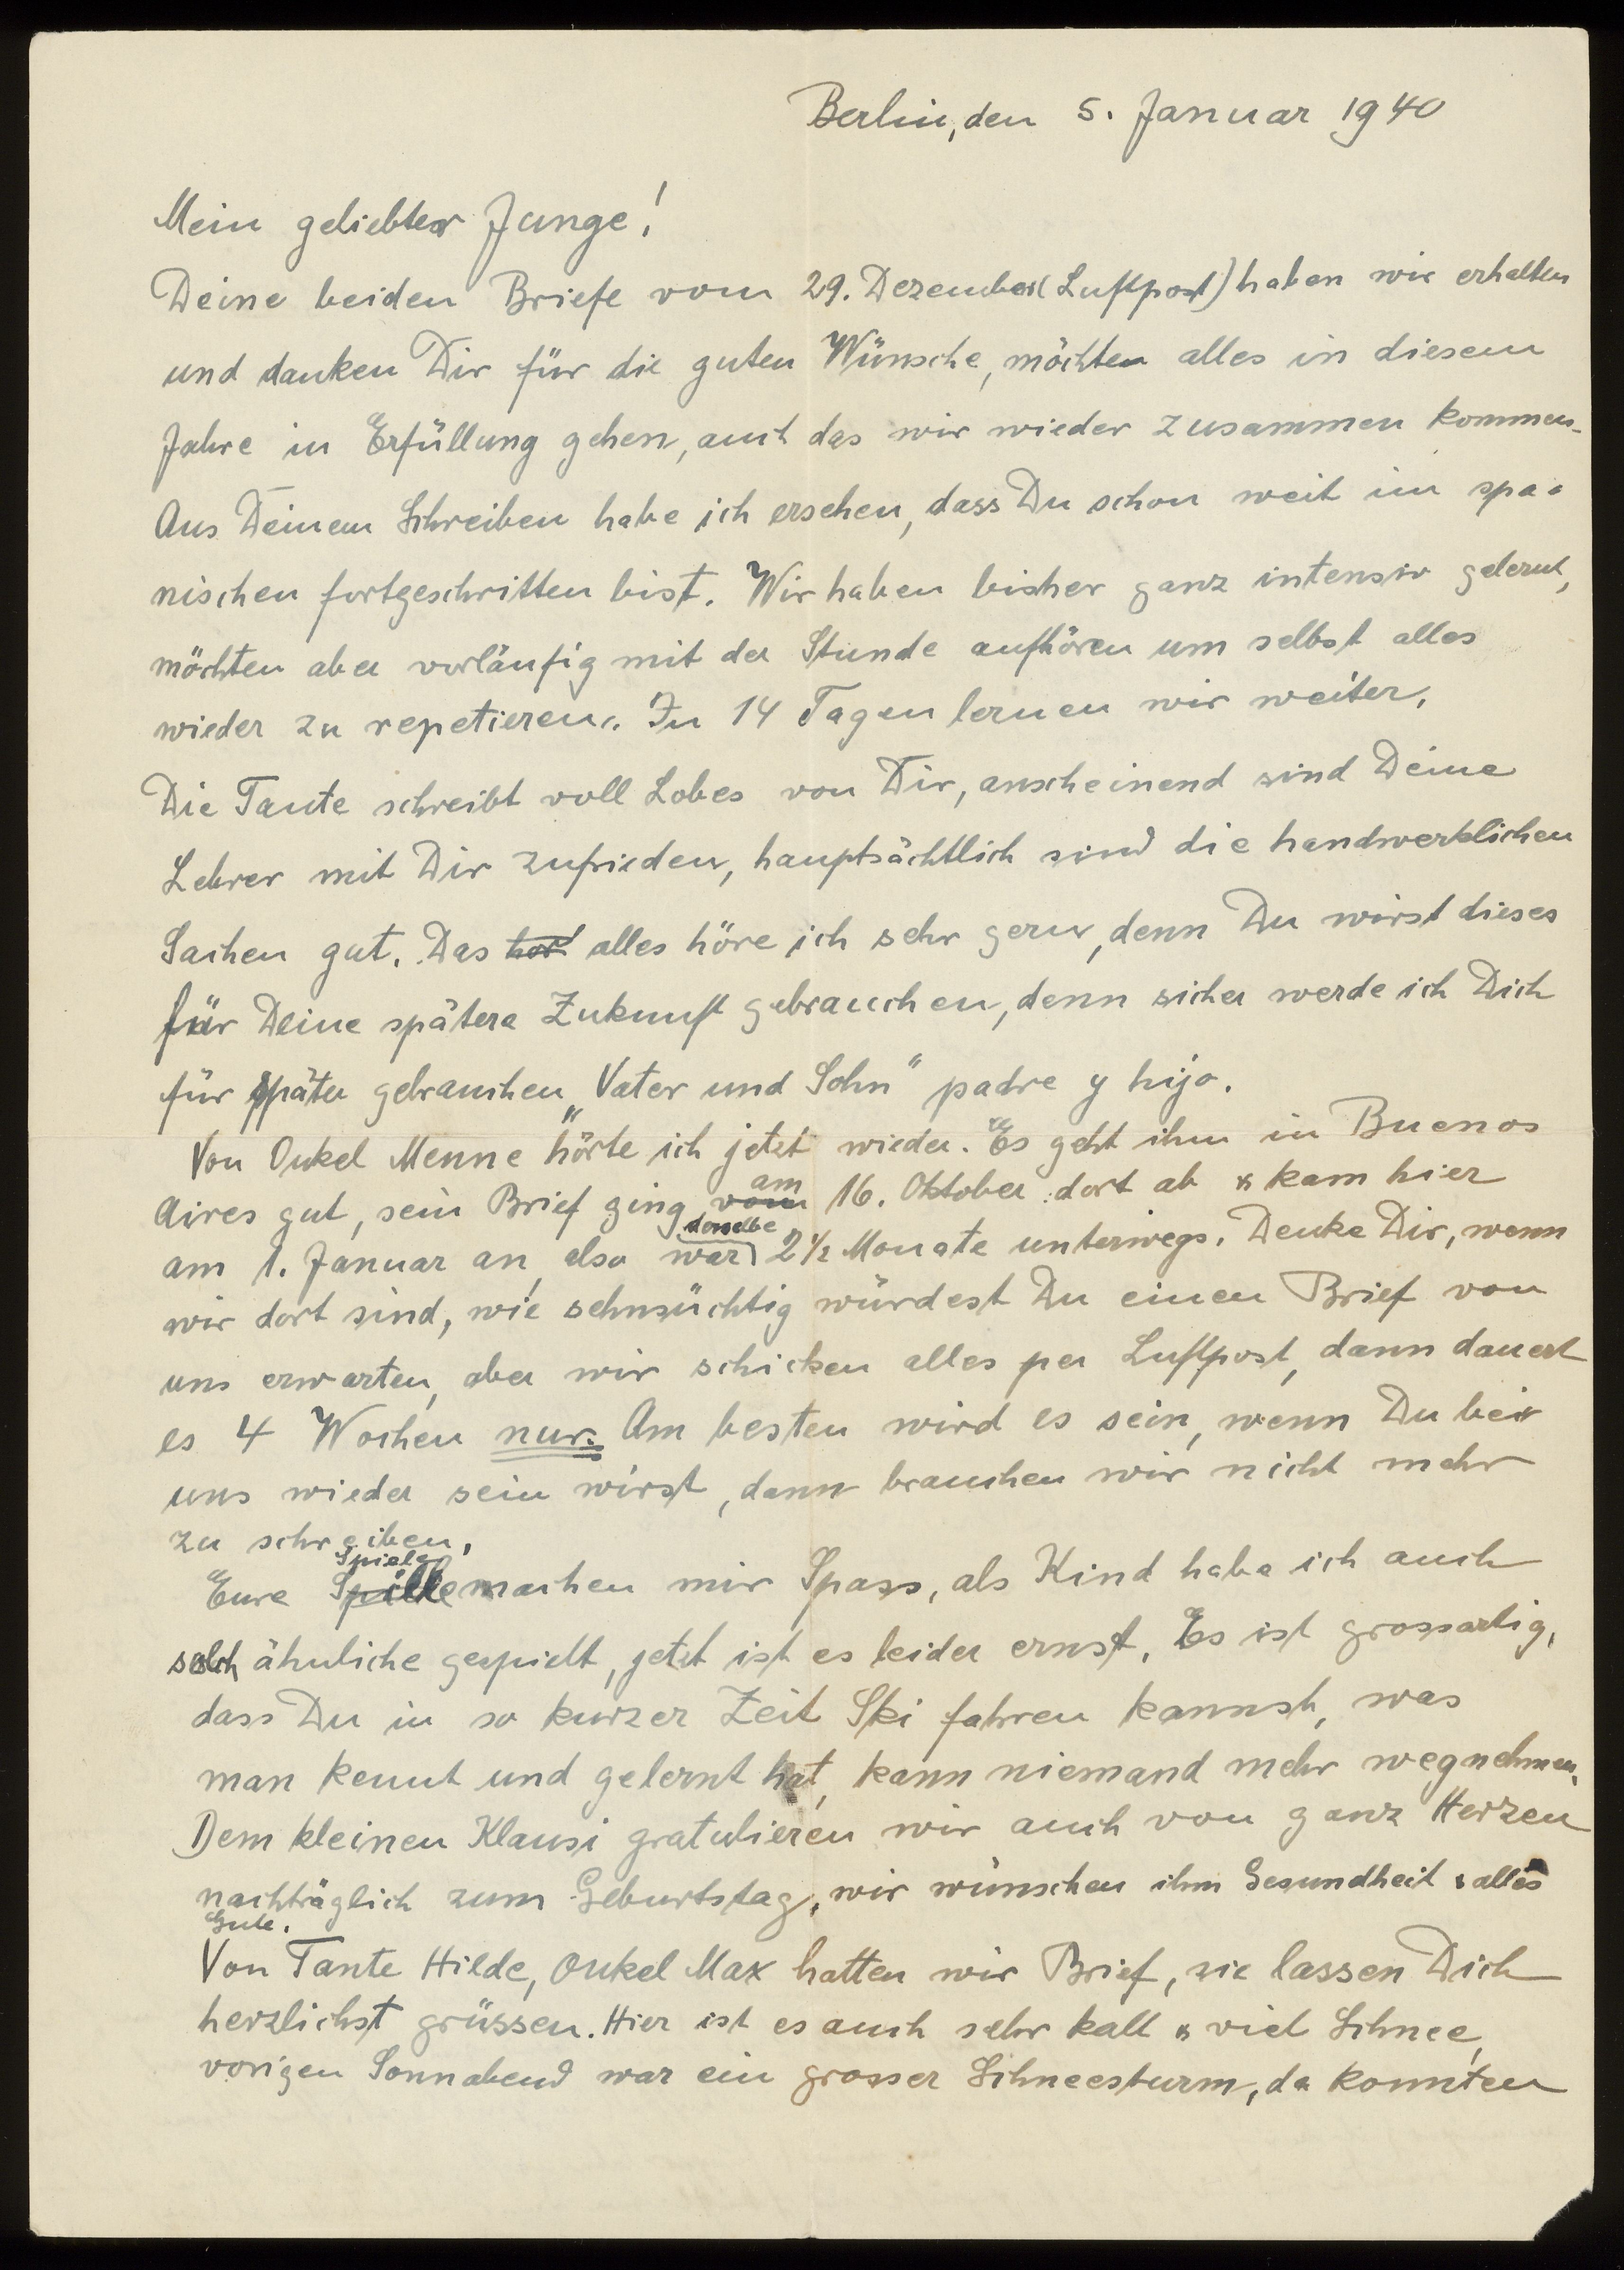 Berlin, den 5. Januar 1940
Mein geliebter Junge!
Deine beiden Briefe vom 29. Dezember (Luftpost) haben wir erhalten
und danken Dir für die guten Wünsche, möchten alles in diesem
Jahre in Erfüllung gehen, auch das wir wieder zusammen kommen.
Aus Deinem Schreiben habe ich ersehen, dass Du schon weit im spa-
nischen fortgeschritten bist. Wir haben bisher ganz intensiv gelernt,
möchten aber vorläufig mit der Stunde aufhören um selbst alles
wieder zu repetieren. In 14 Tagen lernen wir weiter.
Die Tante schreibt voll Lobes von Dir, anscheinend sind Deine
Lehrer mit Dir zufrieden, hauptsächtlich sind die handwerklichen
Sachen gut. Das hör alles höre ich sehr gern, denn Du wirst dieses
für Deine spätere Zukunft gebrauchen, denn sicher werde ich Dich
für später gebrauchen „Vater und Sohn“ padre y hijo.
Von Onkel Menne hörte ich jetzt wieder. Es geht ihm in Buenos
am
Aires gut, sein Brief ging vom 16. Oktober dort ab & kam hier
derselbe
am 1. Januar an, also war 2½ Monate unterwegs. Denke Dir, wenn
wir dort sind, wie sehnsüchtig würdest Du einen Brief von
uns erwarten, aber wir schicken alles per Luftpost, dann dauert
es 4 Wochen nur. Am besten wird es sein, wenn Du bei
uns wieder sein wirst, dann brauchen wir nicht mehr
zu schreiben.
Spiele
Eure Spille machen mir Spass, als Kind habe ich auch
solch ähnliche gespielt, jetzt ist es leider ernst. Es ist grossartig,
dass Du in so kurzer Zeit Ski fahren kannst, was
man kennt und gelernt hat, kann niemand mehr wegnehmen.
Dem kleinen Klausi gratulieren wir auch von ganz Herzen
nachträglich zum Geburtstag, wir wünschen ihm Gesundheit & alles
Gute.
Von Tante Hilde, Onkel Max hatten wir Brief, sie lassen Dich
herzlichst grüssen. Hier ist es auch sehr kalt & viel Schnee,
vorigen Sonnabend war ein grosser Schneesturm, da konnten